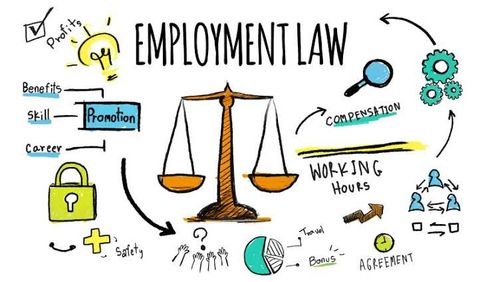 EMPLOYMENT LAW
Profits
Benefits
Skill
Promotion
Career
COMPENSATION
WORKING
HOURS
Safety
?
Travel
Bonus
AGREEMENT